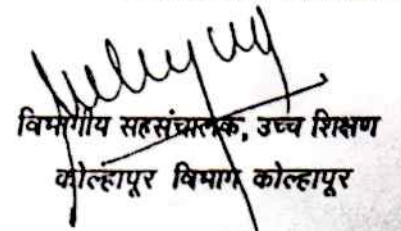 विभागीय सहसंचालक, उच्च शिक्षण
कोल्हापूर विभाग कोल्हापूर